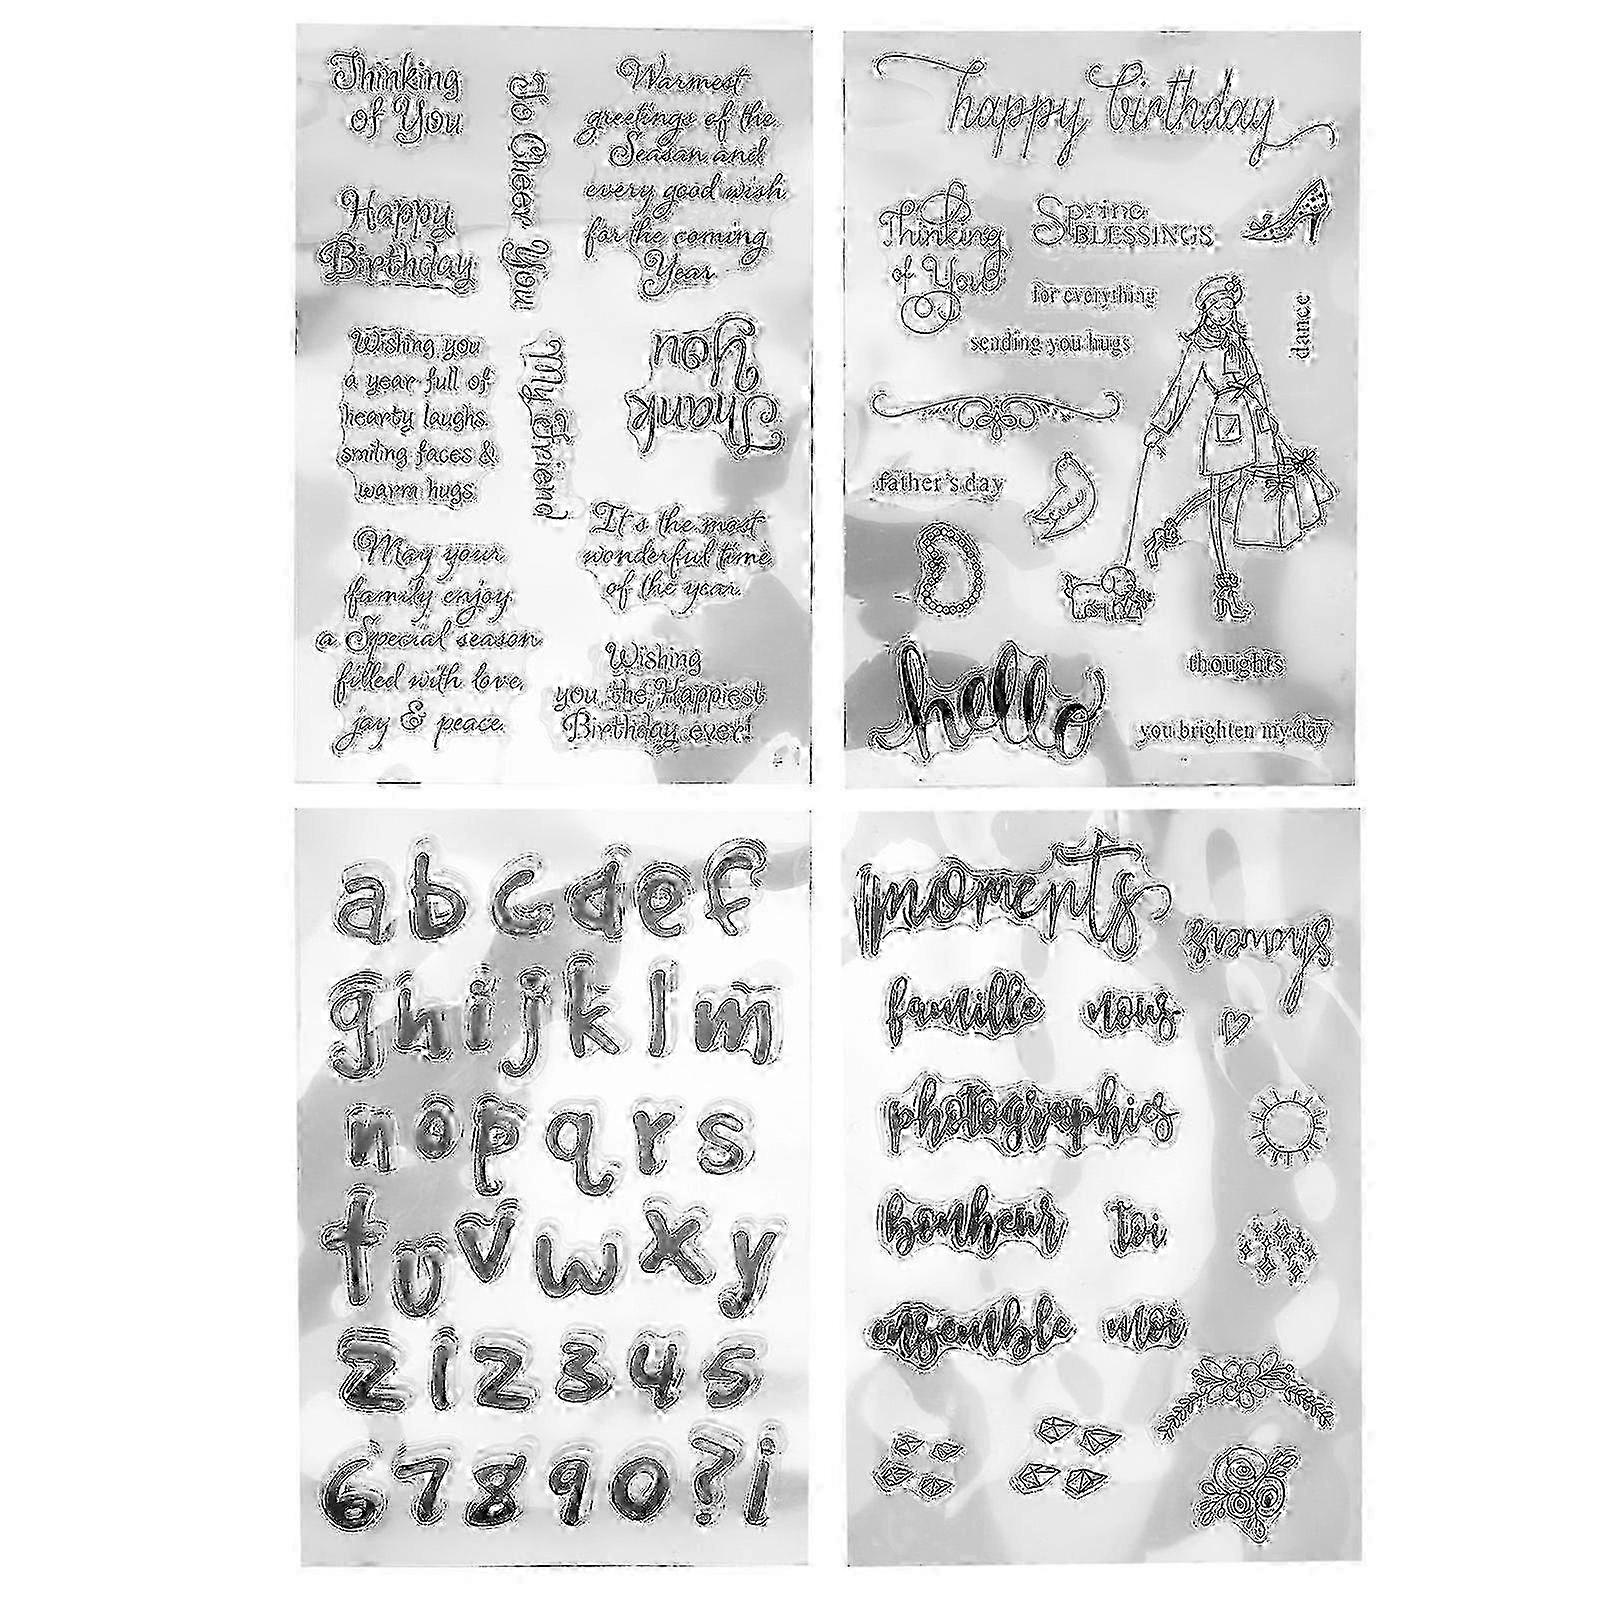 Thinking
of You
To Cheer You
Warmest
greetings of the
Season and
every good wish
for the coming
Year
Happy
Birthday
Wishing you
a year full of
hearty laughs
smiling faces &
warm hugs
My Friend
Thank
You
May your
family enjoy
a Special season
filled with love,
joy & peace.
It's the most
wonderful time
of the year.
Wishing
you the Happiest
Birthday ever!
happy birthday
Thinking
of You
Spring
BLESSINGS
for everything
sending you hugs
dance
father's day
hello
thoughts
you brighten my day
a b c d e f
g h i j k l m
n o p q r s
t u v w x y
z 1 2 3 4 5
6 7 8 9 0 ? !
moments
famille nous
photographies
bonheur toi
ensemble moi